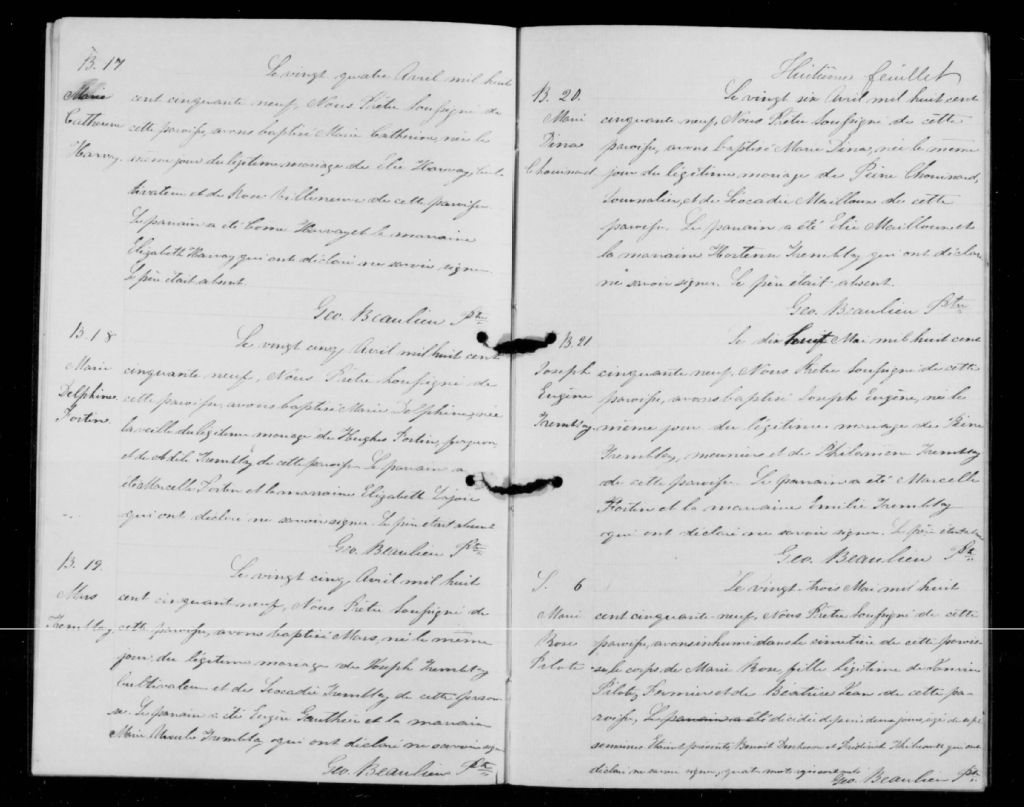 B. 17
Marie
Catherine
Harvay
Le vingt quatre Avril mil huit
cent cinquante neuf, Nous Prêtre soussigné de
cette paroisse, avons baptisé Marie Catherine, née le
même jour du légitime mariage de Elie Harvay, cul-
tivateur et de Rose Villeneuve de cette paroisse.
Le parrain a été Come Harvay et la marraine
Elizabeth Harvay qui ont déclaré ne savoir signer.
Le père était absent.
Geo. Beaulieu Ptre
B. 18
Marie
Delphine
Fortin
Le vingt cinq Avril mil huit cent
cinquante neuf, Nous Prêtre soussigné de
cette paroisse, avons baptisé Marie Delphine, née
la veille du légitime mariage de Hughes Fortin, forgeron
et de Adèle Tremblay de cette paroisse. Le parrain a
été Marcelle Fortin et la marraine Elizabeth Lajoie
qui ont déclaré ne savoir signer. Le père était absent
Geo. Beaulieu Ptre
B. 19.
Mars
Tremblay
Le vingt cinq Avril mil huit
cent cinquant neuf, Nous Prêtre soussigné de
cette paroisse, avons baptisé Mars, né le même
jour du légitime mariage de Joseph Tremblay
Cultivateur et de Léocadie Tremblay de cette parois-
se. Le parrain a été Eugène Gauthier et la marraine
Marie Tremblay qui ont déclaré ne savoir signer
Geo. Beaulieu Ptre
Huitième feuillet
B. 20.
Marie
Dina
Chouinard
Le vingt six Avril mil huit cent
cinquante neuf, Nous Prêtre soussigné de cette
paroisse, avons baptisé Marie Dina, née le même
jour du légitime mariage de Pierre Chouinard,
Journalier, et de Léocadie Mailloux de cette
paroisse. Le parrain a été Elie Mailloux et
la marraine Hortense Tremblay qui ont déclaré
ne savoir signer. Le père était absent.
Geo. Beaulieu Ptre
B. 21
Joseph
Eugène
Tremblay
Le dix huit Mai mil huit cent
cinquante neuf, Nous Prêtre soussigné de cette
paroisse, avons baptisé Joseph Eugène, né le
même jour du légitime mariage de Pierre
Tremblay, meunier et de Philomène Tremblay
de cette paroisse. Le parrain a été Marcelle
Fortin et la marraine Emilie Tremblay
qui ont déclaré ne savoir signer. Le père était
Geo. Beaulieu Ptre
S. 6
Marie
Rose
Pilote
Le vingt trois Mai mil huit
cent cinquante neuf, Nous Prêtre soussigné de cette
paroisse, avons inhumé dans le cimetière de cette parois-
se le corps de Marie Rose, fille légitime de
Pilote, Fermier et de Béatrice de cette pa-
roisse, Le parrain a été décédée depuis deux jours âgée de sept
semaines. Etaient présents, Benoit et Frédéric Thibeault qui ont
déclaré ne savoir signer, quatre mots rayés sont nuls
Geo. Beaulieu Ptre